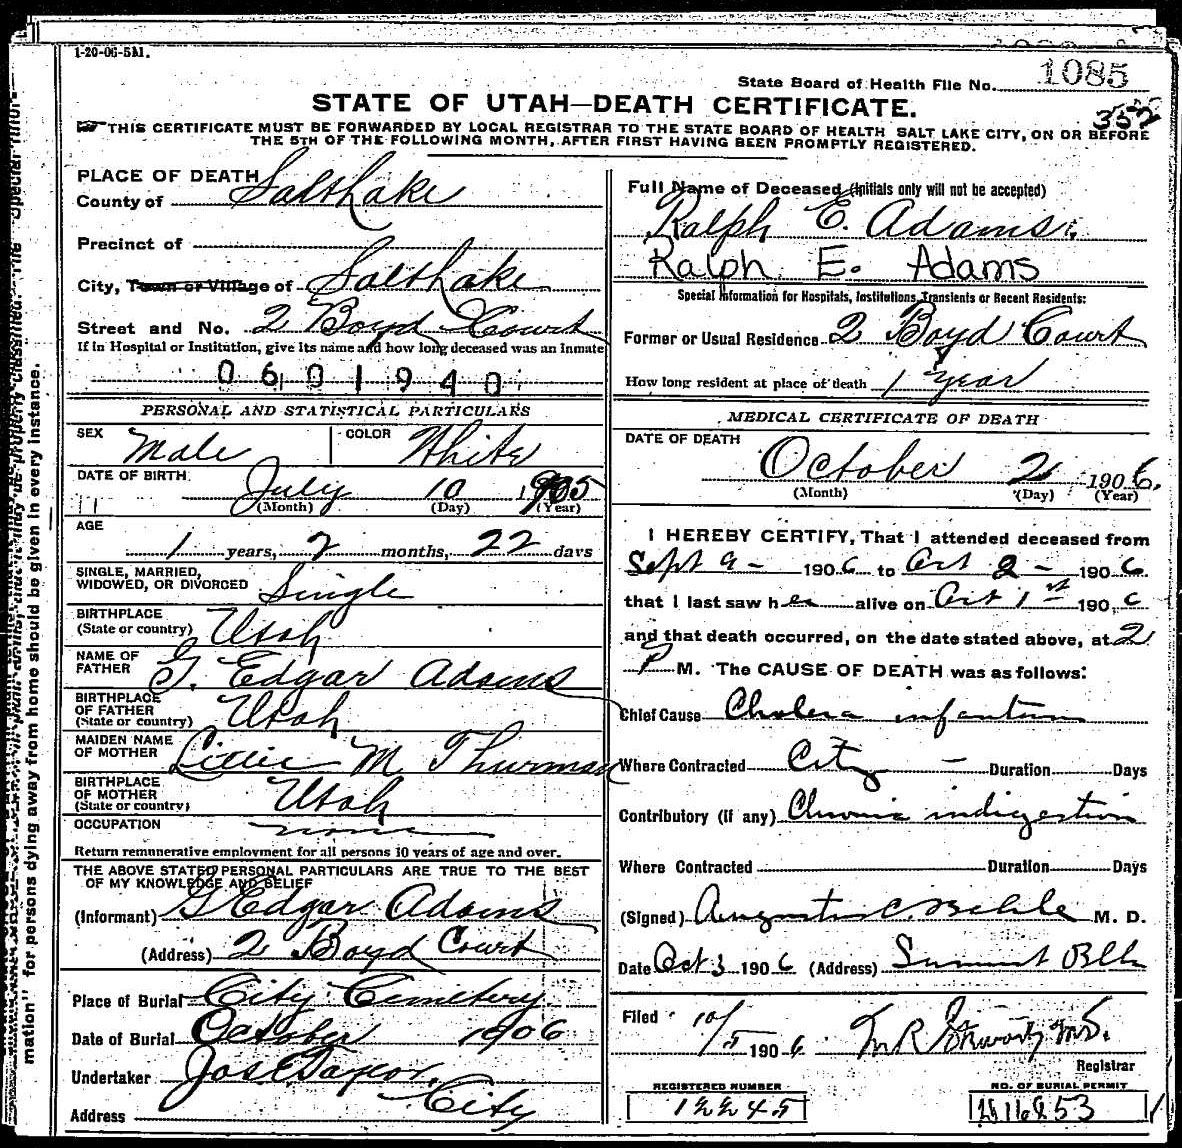 1-20-06-5M.
State Board of Health File No. 1085
352
STATE OF UTAH—DEATH CERTIFICATE.
THIS CERTIFICATE MUST BE FORWARDED BY LOCAL REGISTRAR TO THE STATE BOARD OF HEALTH SALT LAKE CITY, ON OR BEFORE
THE 5TH OF THE FOLLOWING MONTH, AFTER FIRST HAVING BEEN PROMPTLY REGISTERED.
PLACE OF DEATH
County of Salt Lake
Precinct of
City, Town or Village of Salt Lake
Street and No. 2 Boyd Court
If in Hospital or Institution, give its name and how long deceased was an inmate
0601940
PERSONAL AND STATISTICAL PARTICULARS
SEX Male COLOR White
DATE OF BIRTH July 10 1905
(Month) (Day) (Year)
AGE
1 years, 2 months, 22 days
SINGLE, MARRIED,
WIDOWED, OR DIVORCED Single
BIRTHPLACE
(State or country) Utah
NAME OF
FATHER G. Edgar Adams
BIRTHPLACE
OF FATHER
(State or country) Utah
MAIDEN NAME
OF MOTHER Lillie M. Thurman
BIRTHPLACE
OF MOTHER
(State or country) Utah
OCCUPATION none
Return remunerative employment for all persons 10 years of age and over.
THE ABOVE STATED PERSONAL PARTICULARS ARE TRUE TO THE BEST
OF MY KNOWLEDGE AND BELIEF
(Informant) G Edgar Adams
(Address) 2 Boyd Court
Place of Burial City Cemetery
Date of Burial October 1906
Undertaker Jos E Taylor
Address City
Full Name of Deceased (Initials only will not be accepted)
Ralph E. Adams
Ralph E. Adams
Special Information for Hospitals, Institutions, Transients or Recent Residents:
Former or Usual Residence 2 Boyd Court
How long resident at place of death 1 year
MEDICAL CERTIFICATE OF DEATH
DATE OF DEATH
October 2 1906.
(Month) (Day) (Year)
I HEREBY CERTIFY, That I attended deceased from
Sept 9 - 1906 to Oct 2 - 1906
that I last saw her alive on Oct 1st 1906
and that death occurred, on the date stated above, at 2
P M. The CAUSE OF DEATH was as follows:
Chief Cause Cholera infantum
Where Contracted City - Duration Days
Contributory (if any) Chronic indigestion
Where Contracted Duration Days
(Signed) Augustus C. Behle M. D.
Date Oct 3 1906 (Address)
Filed 10/5 1906
Registrar
REGISTERED NUMBER
12245
NO. OF BURIAL PERMIT
mation" for persons dying away from home should be given in every instance.